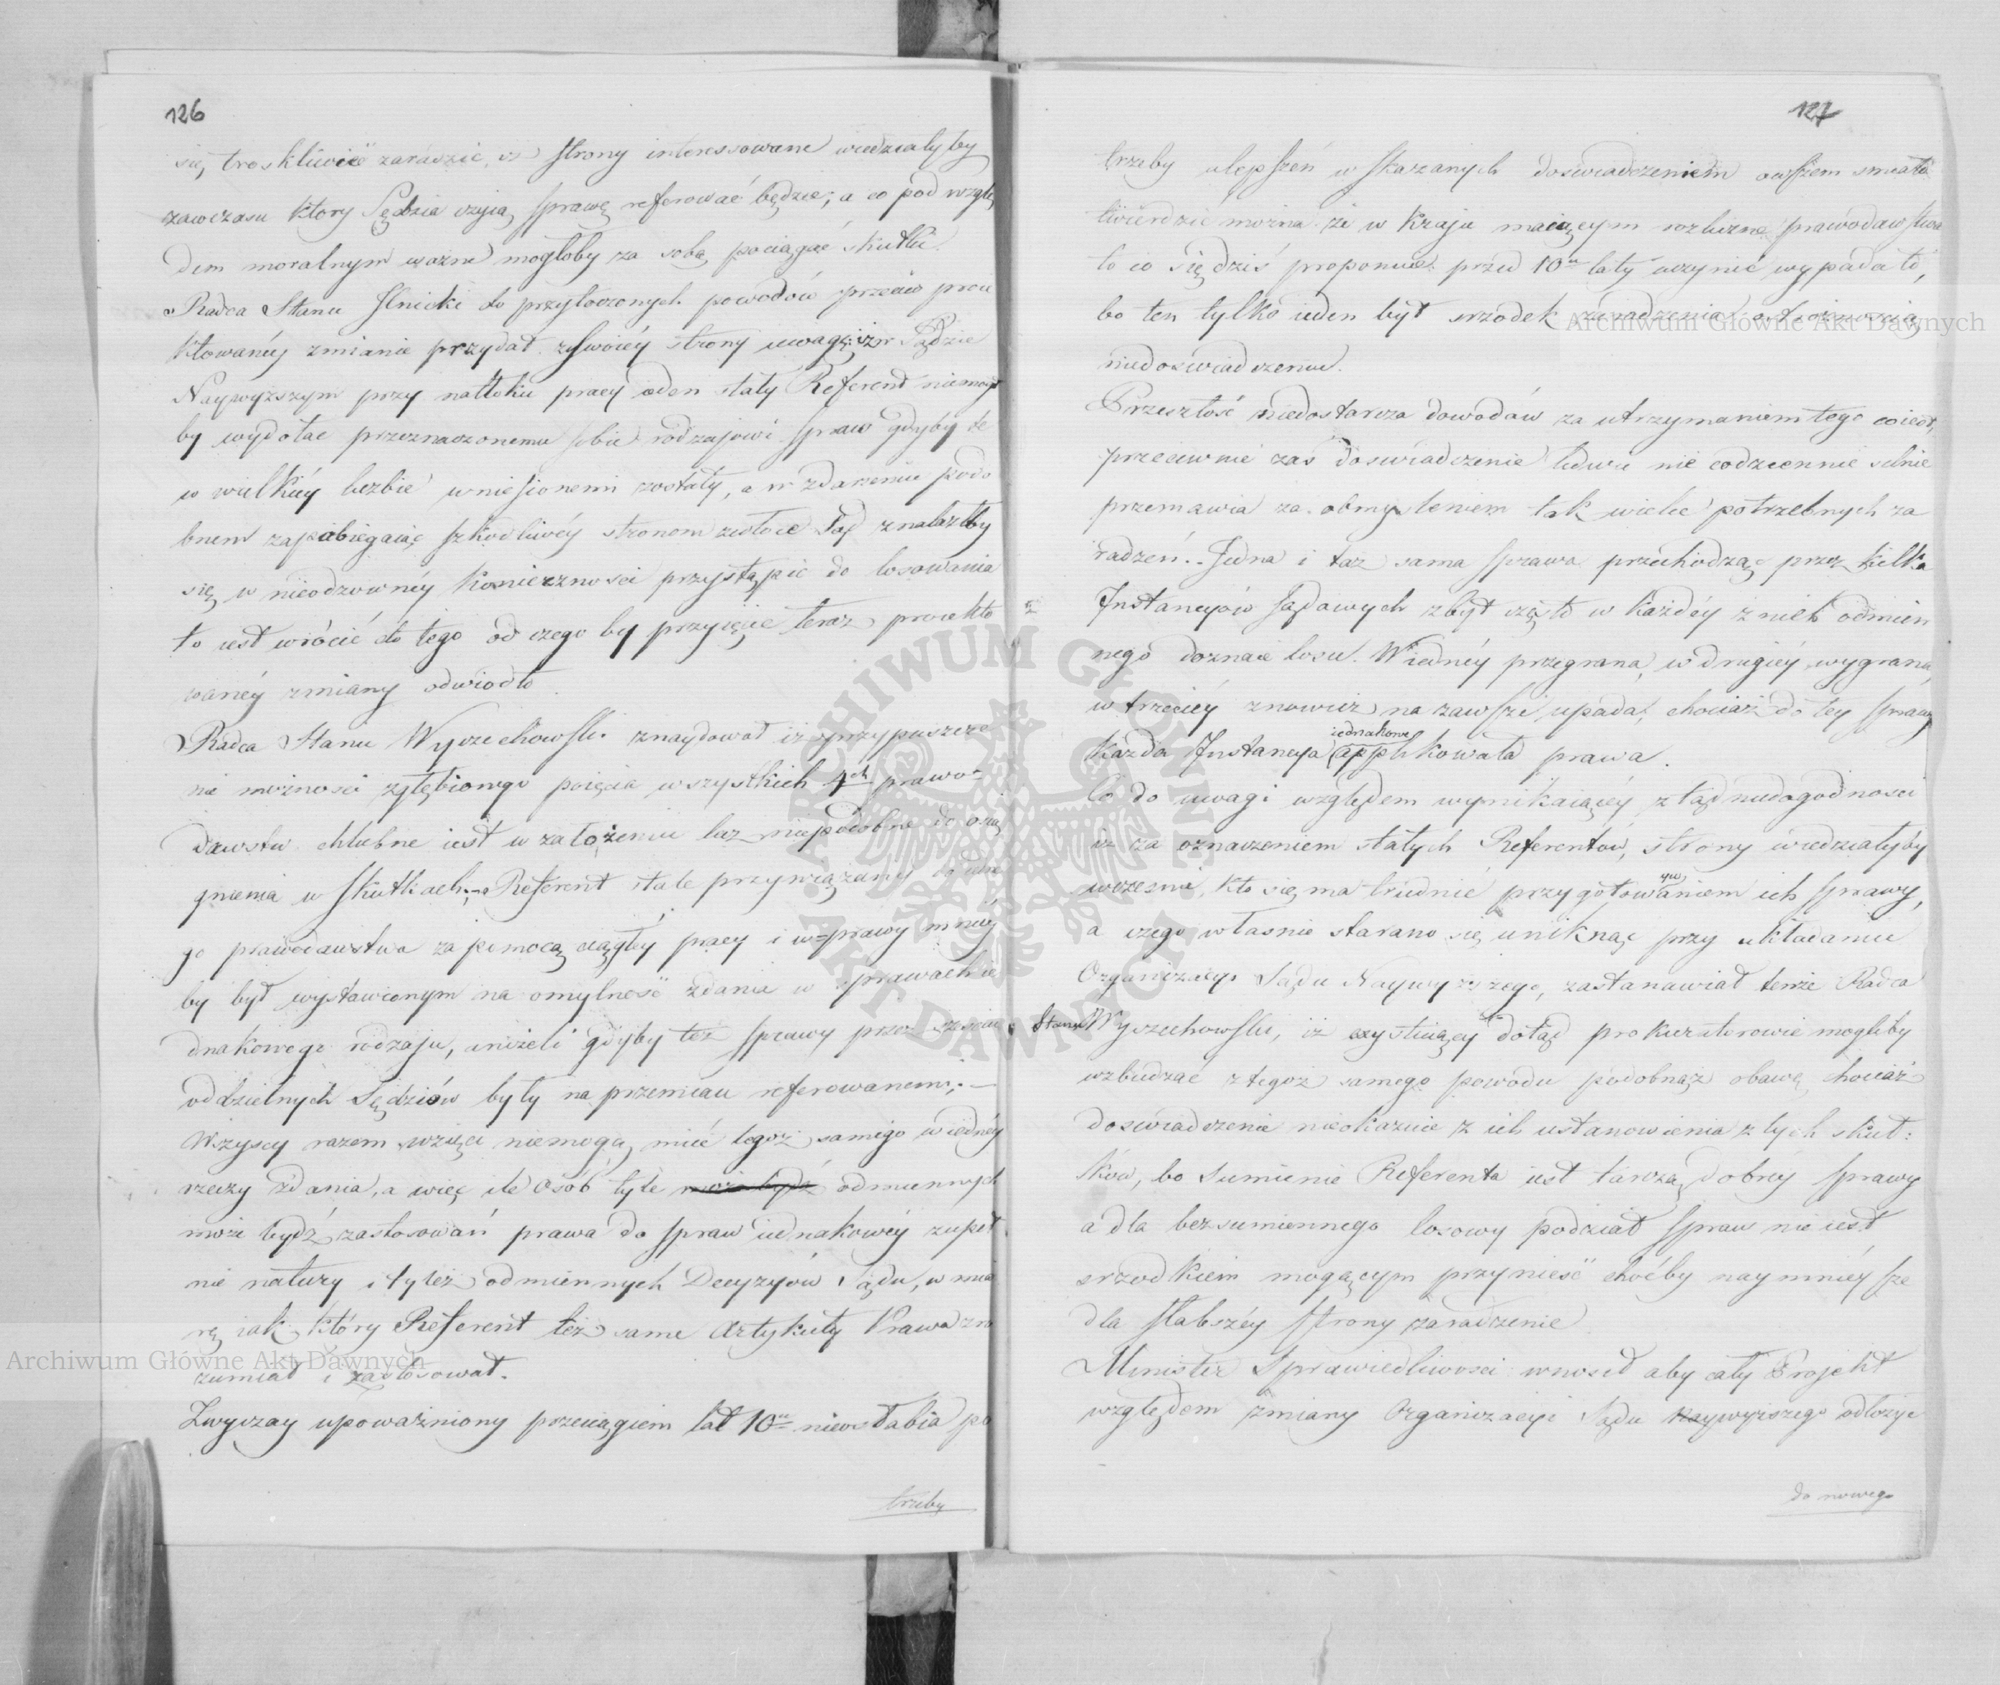 126
się troskliwie zaradzić, iż strony interessowane wiedziałyby
zawczasu ktory Sędzia czyią sprawę referować będzie; a co pod wzglę
dem moralnym ważne mogłoby za sobą pociągać skutki.
Radca Stanu Ilnicki do przytoczonych powodów przeciw proie
ktowanéy zmianie przydał ze swoiéy strony uwagę; iż w Sądzie
Naywyższym przy natłoku pracy ieden stały Referent niemógł
by wydołać przeznaczonemu sobie rodzajowi spraw gdyby te
w wielkiéy liczbie wniesionemi zostały, a w zdarzeniu podo
bnem zapobiegaiąc szkodliwéy stronom zwłoce Sąd znalazłby
się w nieodzownéy konieczności przystąpić do losowania
to iest wrócić do tego od czego by przyięcie teraz proiekto
wanéy zmiany odwiodło.
Radca Stanu Wyczechowski znaydował iż przypuszcze
nie możności zgłębionego poięcia wszystkich 4ch prawo-
dawstw chlubne iest w założeniu lecz niepodobne do osią
gnienia w skutkach; Referent stale przywiązany do iedne
go prawodawstwa za pomocą ciągłéy pracy i wprawy mniéy
by był wystawionym na omylność zdania w sprawach ie
dnakowego rodzaju, aniżeli gdyby też sprawy przez sześciu
oddzielnych Sędziów były na przemian referowanemi;
Wszyscy razem wzięci niemogą mieć tegoż samego w iednéy
rzeczy zdania, a więc ile osób tyle może bydź odmiennych
może bydź zastosowań prawa do spraw iednakowéy zupeł
nie natury i tyleż odmiennych Decyzyów Sądu, w mia
rę iak który Referent też same Artykuły Prawa zro
zumiał i zastosował.
Zwyczay upoważniony przeciągiem lat 10ciu nieosłabia po
trzeby
127
trzeby ulepszeń wskazanych doświadczeniem owszem śmiało
twierdzić można że w kraju maiącym rozliczne prawodawstwa
to co się dziś proponuie przed 10iu laty uczynić wypadało,
bo ten tylko ieden był srzodek zaradzenia ostrożnością
niedoświadczeniu.
Przeszłość niedostarcza dowodów za utrzymaniem tego co iest,
przeciwnie zaś doświadczenie ledwie nie codziennie silnie
przemawia za obmyśleniem tak wielce potrzebnych za
radzeń. Jedna i taż sama sprawa przechodząc przez kilka
Instancyów Sądowych zbyt często w każdéy z nich odmien
nego doznaie losu. W iednéy przegrana, w drugiéy wygrana,
w trzeciéy znowuż na zawsze upada, chociaż do téy sprawy
każda Instancya iednakowe applikowała prawa.
Co do uwagi względem wynikaiącéy ztąd niedogodności
iż za oznaczeniem stałych Referentów, strony wiedziałyby
wcześnie, kto się ma trudnić przygotowywaniem ich sprawy,
a czego własnie starano się uniknąć przy układaniu
Organizacyi Sądu Naywyższego, zastanawiał tenże Radca
Stanu Wyczechowski, iż exystuiący dotąd prokuratorowie mogliby
wzbudzać z tegoż samego powodu podobnąż obawę chociaż
doswiadczenie nieokazuie z ich ustanowienia złych skut:
ków, bo sumienie Referenta iest tarczą dobréy sprawy
a dla bezsumiennego losowy podział spraw nie iest
srzodkiem mogącym przynieść choćby naymnieysze
dla słabszéy strony zaradzenie.
Minister Sprawiedliwości wnosił aby cały Projekt
względem zmiany Organizacyi Sądu Naywyższego odłożyć
do nowego
Archiwum Główne Akt Dawnych
Archiwum Główne Akt Dawnych
ARCHIWUM GŁÓWNE AKT DAWNYCH